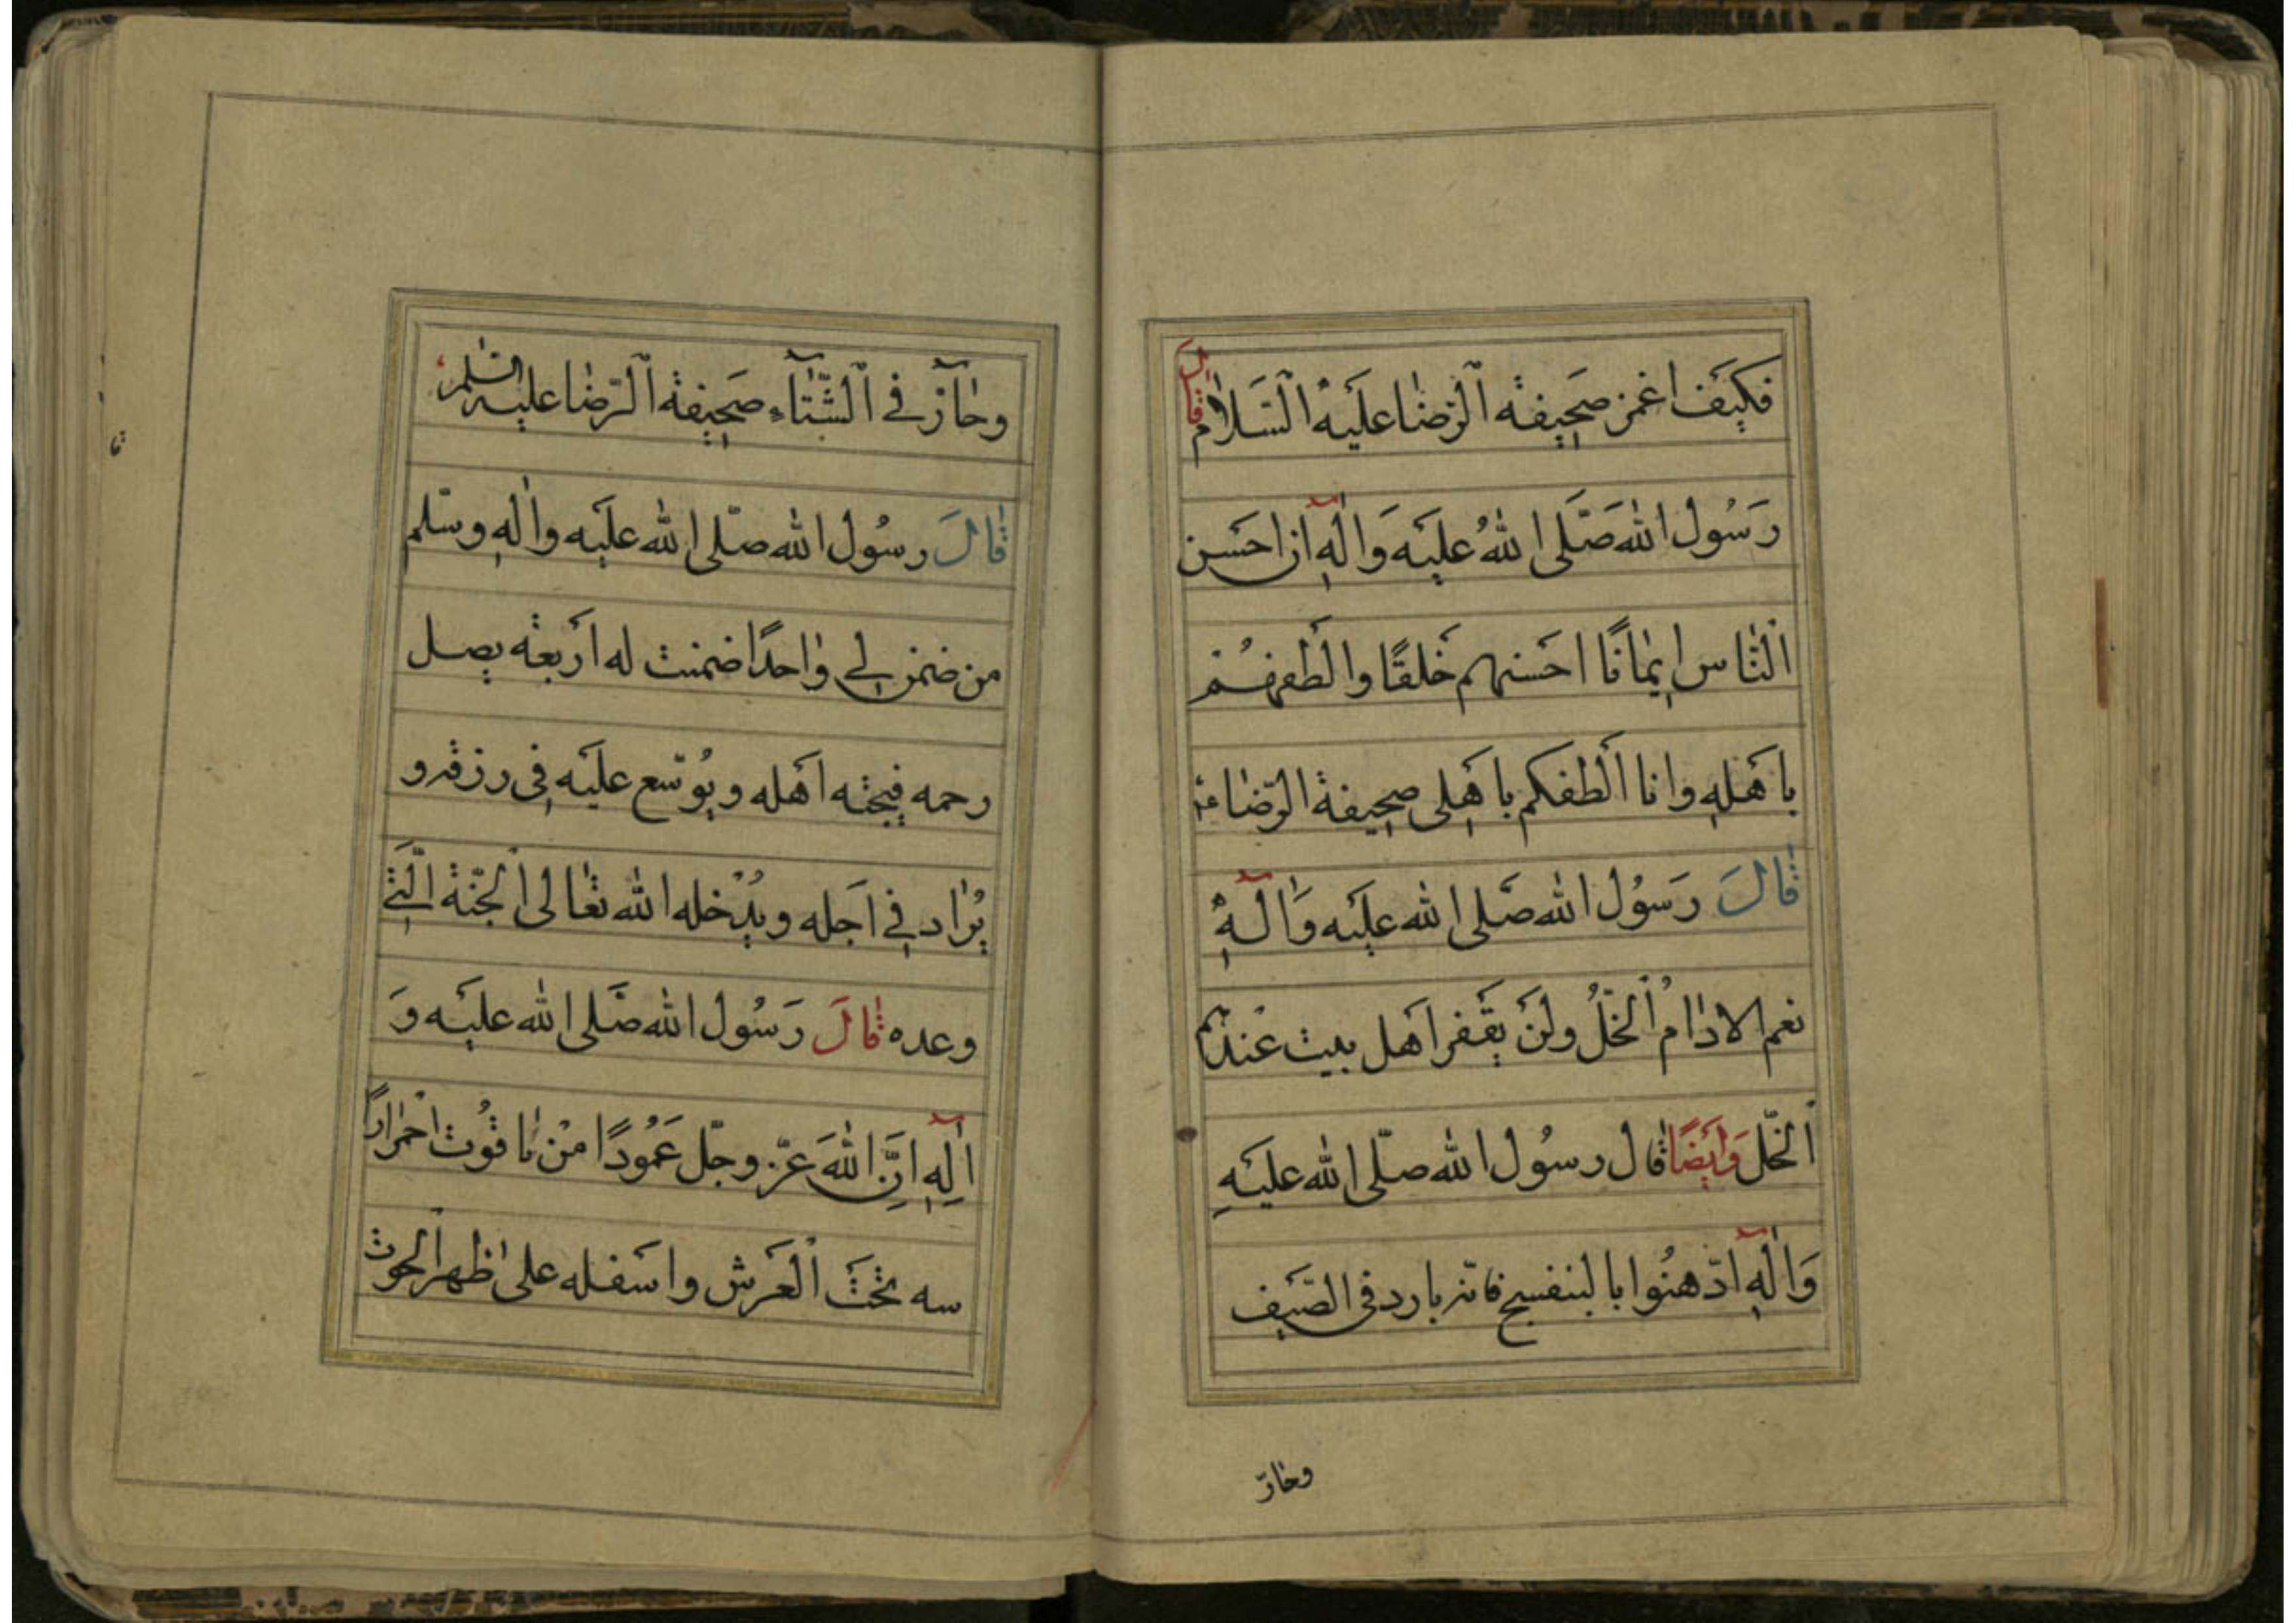 فكَيَف اغمز صَحِيفة اَلرّضٰا عليَهْ اَلسَّلاٰم قٰال
رَسُول الله صَلَّى اللهُ عليَه وَاٰلهِ ان احسَن
اَلنّٰاس اِيمٰانًا احَسنهم خَلقًا والَطفهُم
باهَلهِ وانا اَلطفكم باهَلِى صحِيفة الرّضٰا ع
قٰالَ رَسُول الله صَّلى الله عليَه وَاٰلهِ
نعم الادٰام اُلخلُّ ولَن يَقفر اهَل بيت عندهم
اَلخّل وَايَضًا قٰال رسُول الله صلّى الله عليَهِ
وَاٰلهِ ادّهنُوا بالبنفسج فانّه بارد فى الصّيَف
وحٰارّ
وحٰآرّ فے اَلشّتٰآء صَحِيفة اَلرّضٰا عليه السّلم
قٰالَ رسُول الله صلّى الله عليَه واٰلهِ وسّلم
من ضمن لے وٰاحدًا ضمنت له ارَبعة يصل
رحمه فيحبّه اهَله ويُوسّع عليَه فِى رزقه و
يُزٰاد فِے اجَله ويُدْخله الله تعٰالى اَلجنّة اَلّتے
وعده قٰالَ رَسُول الله صَّلى الله عليَه وَ
اٰلِهِ اِنَّ اللهَ عزّ وجّل عَمُودًا منْ يٰاقُوت احَمرٰارًا
سه تَحَتَ اَلعَرش واسَفله علىٰ ظهر اَلحوت